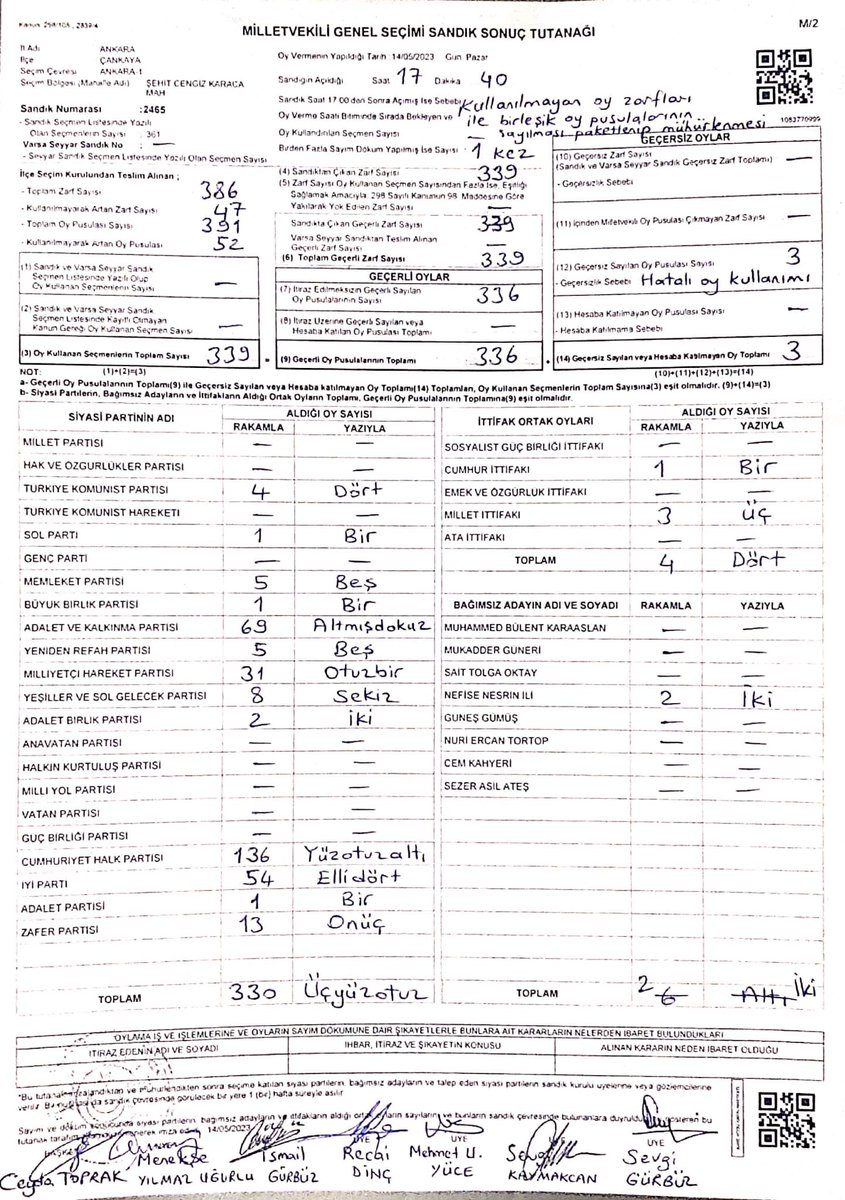 Kanun: 298/105, 2839/4
MİLLETVEKİLİ GENEL SEÇİMİ SANDIK SONUÇ TUTANAĞI
M/2
İl Adı ANKARA
İlçe ÇANKAYA
Seçim Çevresi ANKARA-1
Seçim Bölgesi (Mahalle Adı) ŞEHİT CENGİZ KARACA MAH
Sandık Numarası :2465
- Sandık Seçmen Listesinde Yazılı
Olan Seçmenlerin Sayısı : 361
Varsa Seyyar Sandık No —
- Seyyar Sandık Seçmen Listesinde Yazılı Olan Seçmen Sayısı
Oy Vermenin Yapıldığı Tarih : 14/05/2023 Gün Pazar
Sandığın Açıldığı Saat 17 Dakika 40
Sandık Saat 17:00'den Sonra Açılmış İse Sebebi Kullanılmayan oy zarfları
ile birleşik oy pusulalarının
sayılması paketlenip mühürlenmesi
Oy Verme Saati Bitiminde Sırada Bekleyen ve
Oy Kullandırılan Seçmen Sayısı —
Birden Fazla Sayım Döküm Yapılmış İse Sayısı 1 kez
1053770999
İlçe Seçim Kurulundan Teslim Alınan ;
- Toplam Zarf Sayısı 386
- Kullanılmayarak Artan Zarf Sayısı 47
- Toplam Oy Pusulası Sayısı 391
- Kullanılmayarak Artan Oy Pusulası 52
(1) Sandık ve Varsa Seyyar Sandık
Seçmen Listesinde Yazılı Olup
Oy Kullanan Seçmenlerin Sayısı —
(2) Sandık ve Varsa Seyyar Sandık
Seçmen Listesinde Kayıtlı Olmayan
Kanun Gereği Oy Kullanan Seçmen Sayısı —
(3) Oy Kullanan Seçmenlerin Toplam Sayısı 339
(4) Sandıktan Çıkan Zarf Sayısı 339
(5) Zarf Sayısı Oy Kullanan Seçmen Sayısından Fazla İse, Eşitliği
Sağlamak Amacıyla, 298 Sayılı Kanunun 98. Maddesine Göre
Yakılarak Yok Edilen Zarf Sayısı —
Sandıkta Çıkan Geçerli Zarf Sayısı 339
Varsa Seyyar Sandıktan Teslim Alınan
Geçerli Zarf Sayısı —
(6) Toplam Geçerli Zarf Sayısı 339
GEÇERLİ OYLAR
(7) İtiraz Edilmeksizin Geçerli Sayılan
Oy Pusulalarının Sayısı 336
(8) İtiraz Üzerine Geçerli Sayılan veya
Hesaba Katılan Oy Pusulası Toplamı —
(9) Geçerli Oy Pusulalarının Toplamı 336
GEÇERSİZ OYLAR
(10) Geçersiz Zarf Sayısı
(Sandık ve Varsa Seyyar Sandık Geçersiz Zarf Toplamı) —
- Geçersizlik Sebebi
(11) İçinden Milletvekili Oy Pusulası Çıkmayan Zarf Sayısı —
(12) Geçersiz Sayılan Oy Pusulası Sayısı 3
- Geçersizlik Sebebi Hatalı oy kullanımı
(13) Hesaba Katılmayan Oy Pusulası Sayısı —
- Hesaba Katılmama Sebebi
(14) Geçersiz Sayılan veya Hesaba Katılmayan Oy Toplamı 3
NOT: (1)+(2)=(3) (10)+(11)+(12)+(13)=(14)
a- Geçerli Oy Pusulalarının Toplamı(9) ile Geçersiz Sayılan veya Hesaba katılmayan Oy Toplamı(14) Toplamları, Oy Kullanan Seçmenlerin Toplam Sayısına(3) eşit olmalıdır. (9)+(14)=(3)
b- Siyasi Partilerin, Bağımsız Adayların ve İttifakların Aldığı Ortak Oyların Toplamı, Geçerli Oy Pusulalarının Toplamına(9) eşit olmalıdır.
SİYASİ PARTİNİN ADI ALDIĞI OY SAYISI
RAKAMLA YAZIYLA
MİLLET PARTİSİ — —
HAK VE ÖZGÜRLÜKLER PARTİSİ — —
TÜRKİYE KOMÜNİST PARTİSİ 4 Dört
TÜRKİYE KOMÜNİST HAREKETİ — —
SOL PARTİ 1 Bir
GENÇ PARTİ — —
MEMLEKET PARTİSİ 5 Beş
BÜYÜK BİRLİK PARTİSİ 1 Bir
ADALET VE KALKINMA PARTİSİ 69 Altmışdokuz
YENİDEN REFAH PARTİSİ 5 Beş
MİLLİYETÇİ HAREKET PARTİSİ 31 Otuzbir
YEŞİLLER VE SOL GELECEK PARTİSİ 8 Sekiz
ADALET BİRLİK PARTİSİ 2 iki
ANAVATAN PARTİSİ — —
HALKIN KURTULUŞ PARTİSİ — —
MİLLİ YOL PARTİSİ — —
VATAN PARTİSİ — —
GÜÇ BİRLİĞİ PARTİSİ — —
CUMHURİYET HALK PARTİSİ 136 Yüzotuzaltı
İYİ PARTİ 54 Ellidört
ADALET PARTİSİ 1 Bir
ZAFER PARTİSİ 13 Onüç
TOPLAM 330 Üçyüzotuz
İTTİFAK ORTAK OYLARI ALDIĞI OY SAYISI
RAKAMLA YAZIYLA
SOSYALİST GÜÇ BİRLİĞİ İTTİFAKI — —
CUMHUR İTTİFAKI 1 Bir
EMEK VE ÖZGÜRLÜK İTTİFAKI — —
MİLLET İTTİFAKI 3 Üç
ATA İTTİFAKI — —
TOPLAM 4 Dört
BAĞIMSIZ ADAYIN ADI VE SOYADI RAKAMLA YAZIYLA
MUHAMMED BÜLENT KARAASLAN — —
MUKADDER GÜNERİ — —
SAİT TOLGA OKTAY — —
NEFİSE NESRİN İLİ 2 İki
GÜNEŞ GÜMÜŞ — —
NURİ ERCAN TORTOP — —
CEM KAHYERİ — —
SEZER ASİL ATEŞ — —
TOPLAM 2 6 Altı İki
OYLAMA İŞ VE İŞLEMLERİNE VE OYLARIN SAYIM DÖKÜMÜNE DAİR ŞİKAYETLERLE BUNLARA AİT KARARLARIN NELERDEN İBARET BULUNDUKLARI
İTİRAZ EDENİN ADI VE SOYADI İHBAR, İTİRAZ VE ŞİKAYETİN KONUSU ALINAN KARARIN NEDEN İBARET OLDUĞU
"Bu tutanak imzalandıktan ve mühürlendikten sonra seçime katılan siyasi partilerin, bağımsız adayların ve talep eden siyasi partilerin sandık kurulu üyelerine veya gözlemcilerine
verilir. Bu tutanak da sandık çevresinde görülecek bir yere 1 (bir) hafta süreyle asılır
Sayım ve döküm sonucunda siyasi partilerin, bağımsız adayların ve ittifakların aldığı ortak oyların sayılarını ve bunların sandık çevresinde bulunanlara duyruldu gösteren bu
14/05/2023
BAŞKAN ÜYE ÜYE ÜYE
Ceyda TOPRAK Menekşe YILMAZ UĞURLU İsmail GÜRBÜZ Recai DİNÇ Mehmet U. YÜCE KAYMAKCAN Sevgi GÜRBÜZ